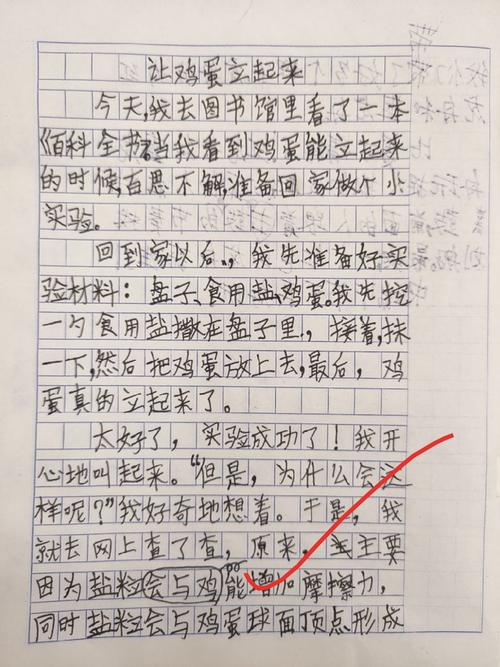 让鸡蛋立起来
今天,我去图书馆里看了一本
《百科全书》当我看到鸡蛋能立起来
的时候,百思不解准备回家做个小
实验。
回到家以后,我先准备好实
验材料:盘子、食用盐、鸡蛋。我先挖
一勺食用盐撒在盘子里,接着,抹
一下,然后把鸡蛋放上去,最后,鸡
蛋真的立起来了。
太好了,实验成功了!我开
心地叫起来。“但是,为什么会这
样呢?”我好奇地想着。于是,我
就去网上查了查,原来,主要
因为盐粒会与鸡能增加摩擦力,
同时盐粒会与鸡蛋球面顶点形成